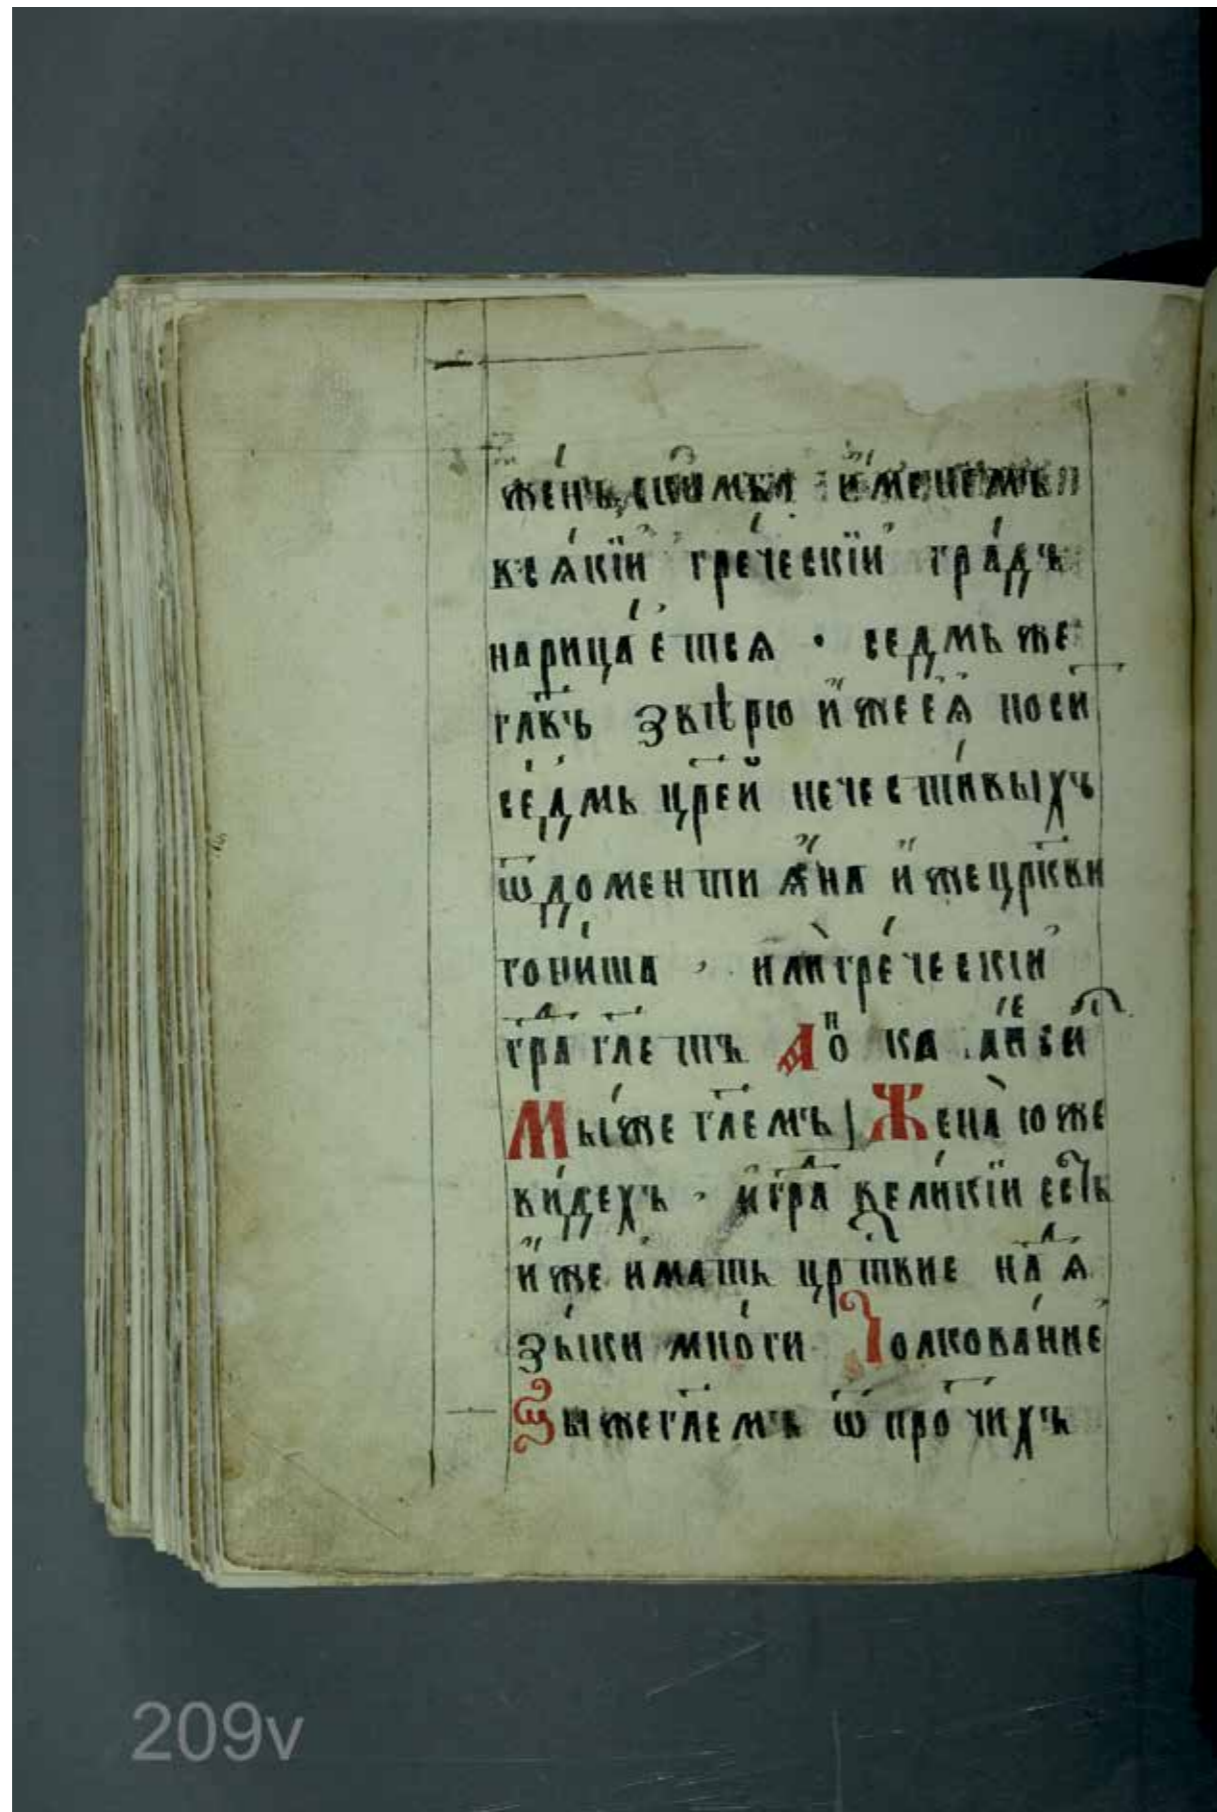 же́нъскимъ и҆́менемъ
вся́кїй гре́ческїй гра́дъ
нарица́е҆тся · се́дмь же
гла҃въ ѕвѣрю и҆́же ея̀ носи
се́дмь цр҃е́й нечести́выхъ
ѿ доментиѧ҆́на и҆́же цр҃кви
гони́ша , или̑ гре́ческїй
гра҃ гл҃етъ А҆по ка а҆́лсїи
Мы́же гл҃емъ | Жена̀ юже
ви́дехъ , и҆ гра҃ вели́кїи есть
и҆́же и҆́мать цр҃твие на҃ ѧ
зы́ки мно́ги Толкова́ние
Зы́же гл҃емъ ѿ про҃чихъ
209v